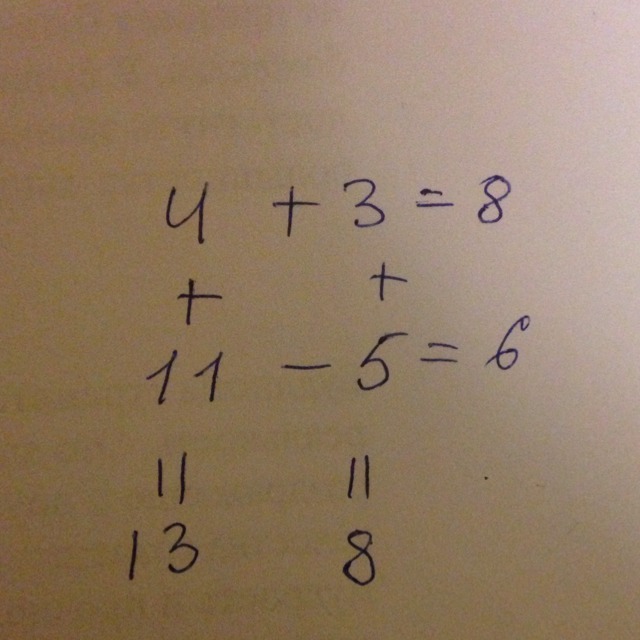 4 + 3 = 8
+ +
11 - 5 = 6
|| ||
13 8